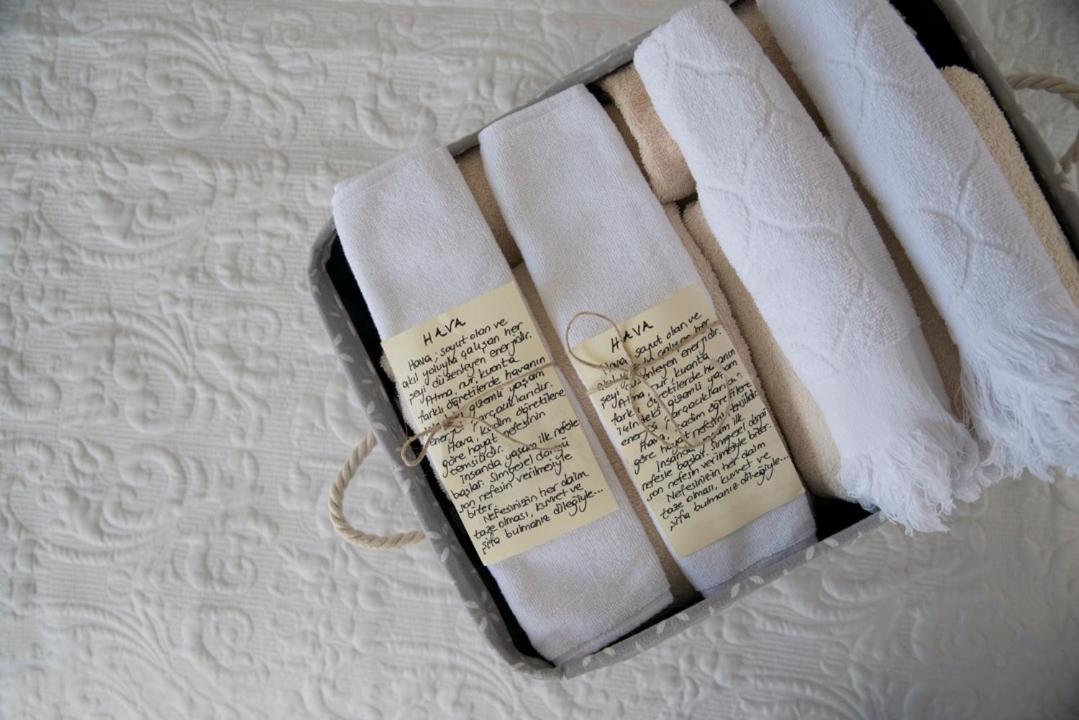 HAVA
Hava; soyut olan ve
akıl yoluyla çalışan her
şeyi düzenleyen enerjidir.
Atma, nur, kuanta
farklı öğretilerde havanın
gizemli yaşam
enerji parçacıklarıdır.
Hava, kadim öğretilere
göre hayat nefesinin
temsilidir.
İnsanda yaşam ilk nefesle
başlar. Simgesel döngü
son nefesin verilmesiyle
biter.
Nefesinizin her daim
taze olması, kuvvet ve
şifa bulmanız dileğiyle...
HAVA
Hava; soyut olan ve
akıl çalışan her
şeyi düzenleyen enerjidir.
Atma, nur, kuanta
farklı öğretilerde
gizemli yaşam
enerji parçacıkları
Hava, kadim öğretilere
göre hayat nefesinin
İnsanda yaşam ilk
nefesle başlar. Simgesel döngü
son nefesin verilmesiyle biter.
Nefesinizin her daim
taze olması, kuvvet ve
şifa bulmanız dileğiyle...